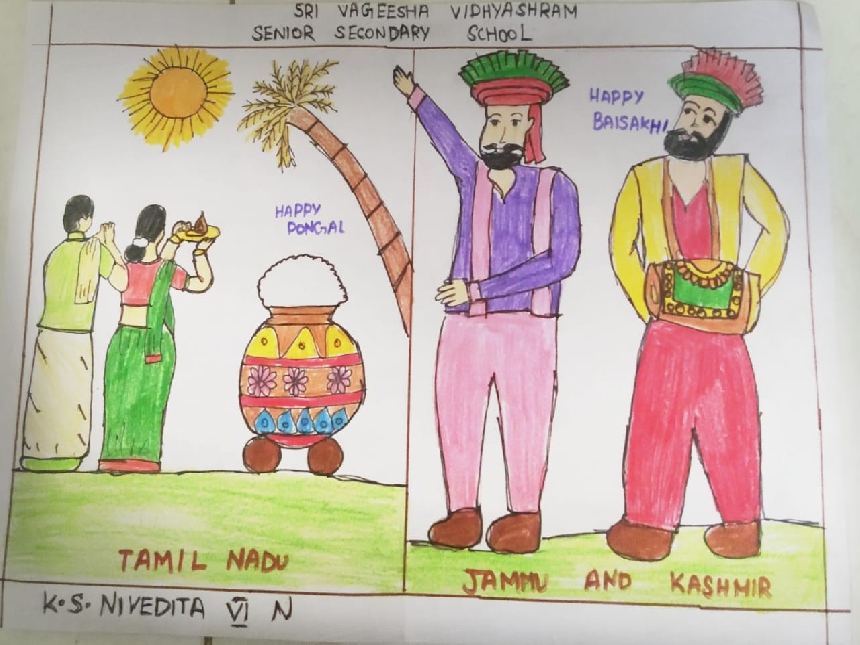 SRI VAGEESHA VIDHYASHRAM
SENIOR SECONDARY SCHOOL
HAPPY
PONGAL
HAPPY
BAISAKHI
TAMIL NADU
JAMMU AND KASHMIR
K.S. NIVEDITA VI N